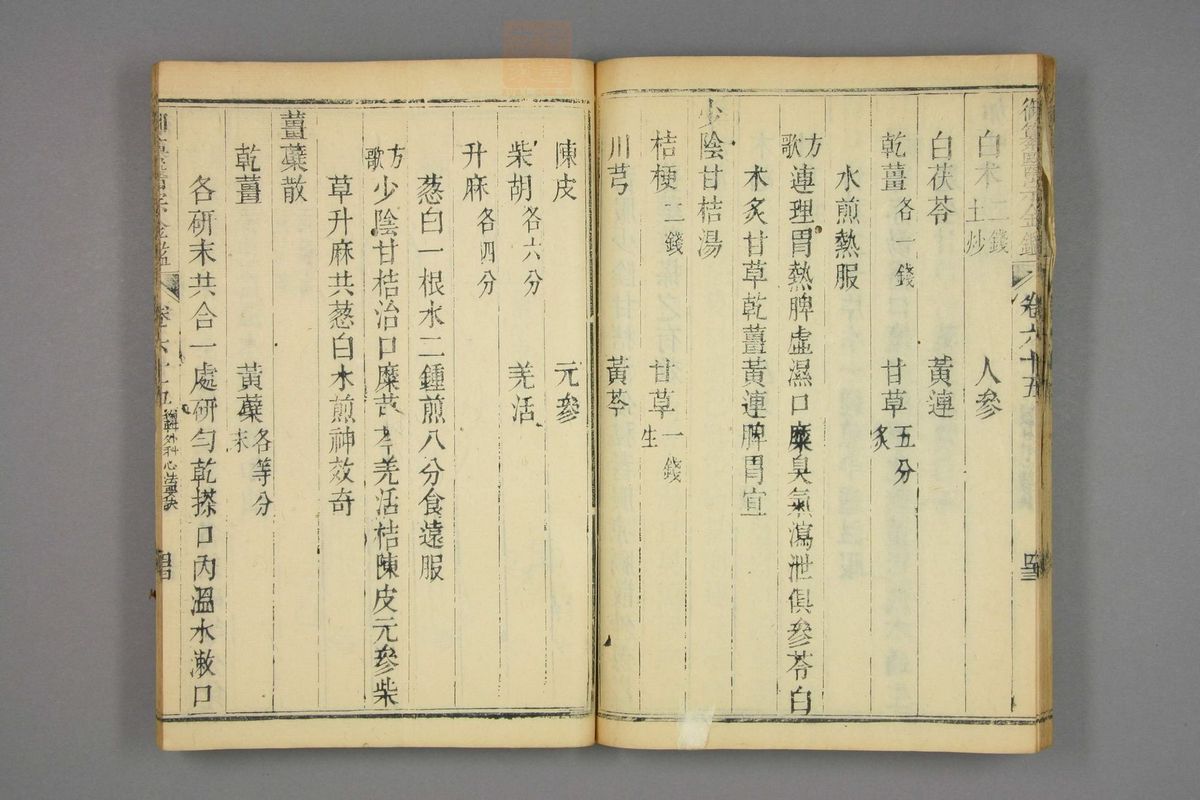 白朮二錢土炒 人參
白茯苓 黃連
乾薑各一錢 甘草五分炙
水煎熱服
方歌 連理胃熱脾虛濕口糜臭氣瀉泄俱參苓白
朮炙甘草乾薑黃連脾胃宜
少陰甘桔湯
桔梗二錢 甘草一錢生
川芎 黃芩
陳皮 元參
柴胡各六分 羌活
升麻各四分
葱白一根水二鍾煎八分食遠服
方歌 少陰甘桔治口糜芎芩羌活桔陳皮元參柴
草升麻共葱白水煎神效奇
薑蘗散
乾薑 黃蘗各等分末
各研末共合一處研勻乾搽口內溫水漱口
卷六十五